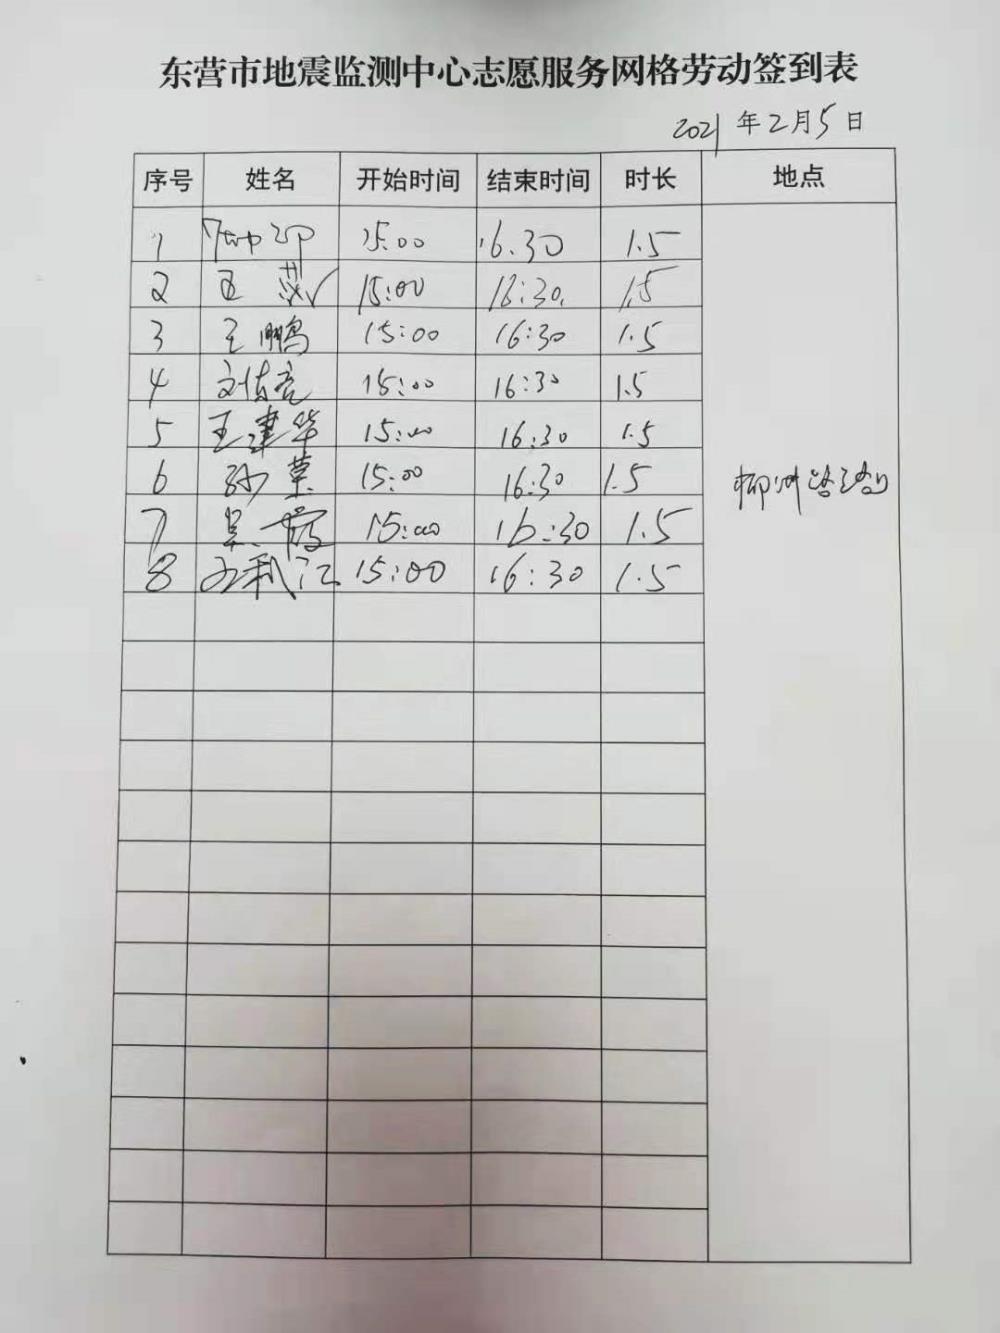 东营市地震监测中心志愿服务网格劳动签到表
2021年2月5日
序号 姓名 开始时间 结束时间 时长 地点
1 15:00 16.30 1.5
2 王 15:00 16:30. 1.5
3 王鹏 15:00 16:30 1.5
4 刘 亮 15:00 16:30 1.5
5 王建华 15:00 16:30 1.5
6 孙 15:00 16:30 1.5
柳州路
7 吴霞 15:00 16:30 1.5
8 利江 15:00 16:30 1.5